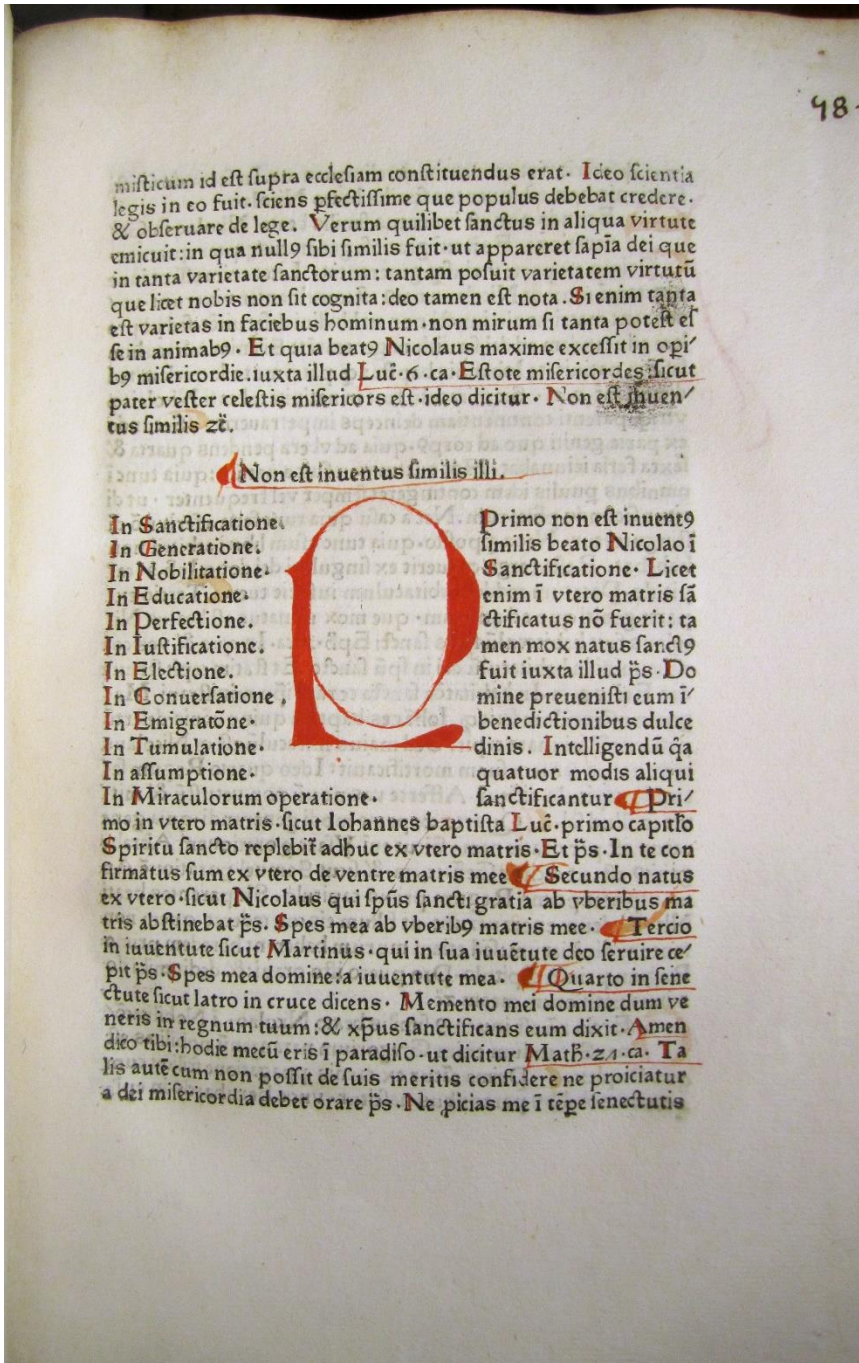 48
misticum id est supra ecclesiam constituendus erat· Ideo scientia
legis in eo fuit· sciens ꝑfectissime que populus debebat credere·
& obseruare de lege. Verum quilibet sanctus in aliqua virtute
emicuit: in qua nullꝰ sibi similis fuit· ut appareret sapīa dei que
in tanta varietate sanctorum: tantam posuit varietatem virtutū
que licet nobis non sit cognita: deo tamen est nota. Si enim tanta
est varietas in faciebus hominum· non mirum si tanta potest es
se in animabꝰ· Et quia beatꝰ Nicolaus maxime excessit in oꝑi⸗
bꝰ misericordie. iuxta illud Luc̄· 6· ca· Estote misericordes: sicut
pater vester celestis misericors est· ideo dicitur· Non est īuuen⸗
tus similis ⁊c̄.
Non est inuentus similis illi.
In Sanctificatione.
In Generatione.
In Nobilitatione·
In Educatione·
In Perfectione.
In Iustificatione.
In Electione.
In Conuersatione.
In Emigratōne·
In Tumulatione·
In assumptione·
In Miraculorum operatione·
Primo non est inuentꝰ
similis beato Nicolao ī
Sanctificatione· Licet
enim ī vtero matris sā
ctificatus nō fuerit: ta
men mox natus sanctꝰ
fuit iuxta illud p̄s· Do
mine preuenisti eum ī⸗
benedictionibus dulce
dinis. Intelligendū q̄a
quatuor modis aliqui
sanctificantur Pri⸗
mo in vtero matris· sicut Iohannes baptista Luc̄· primo capitło
Spiritu sancto replebit̄ adhuc ex vtero matris· Et p̄s· In te con
firmatus sum ex vtero de ventre matris mee Secundo natus
ex vtero· sicut Nicolaus qui spūs sancti gratia ab vberibus ma
tris abstinebat p̄s. Spes mea ab vberibꝰ matris mee· Tercio
in iuuentute sicut Martinus· qui in sua iuuētute deo seruire ce⸗
pit p̄s· Spes mea domine: a iuuentute mea· Quarto in sene
ctute sicut latro in cruce dicens· Memento mei domine dum ve
neris in regnum tuum: & xp̄us sanctificans eum dixit· Amen
dico tibi: hodie mecū eris ī paradiso· ut dicitur Math̄· 21· ca· Ta
lis autē cum non possit de suis meritis confidere ne proiciatur
a dei misericordia debet orare p̄s· Ne ꝓicias me ī tēꝑe senectutis